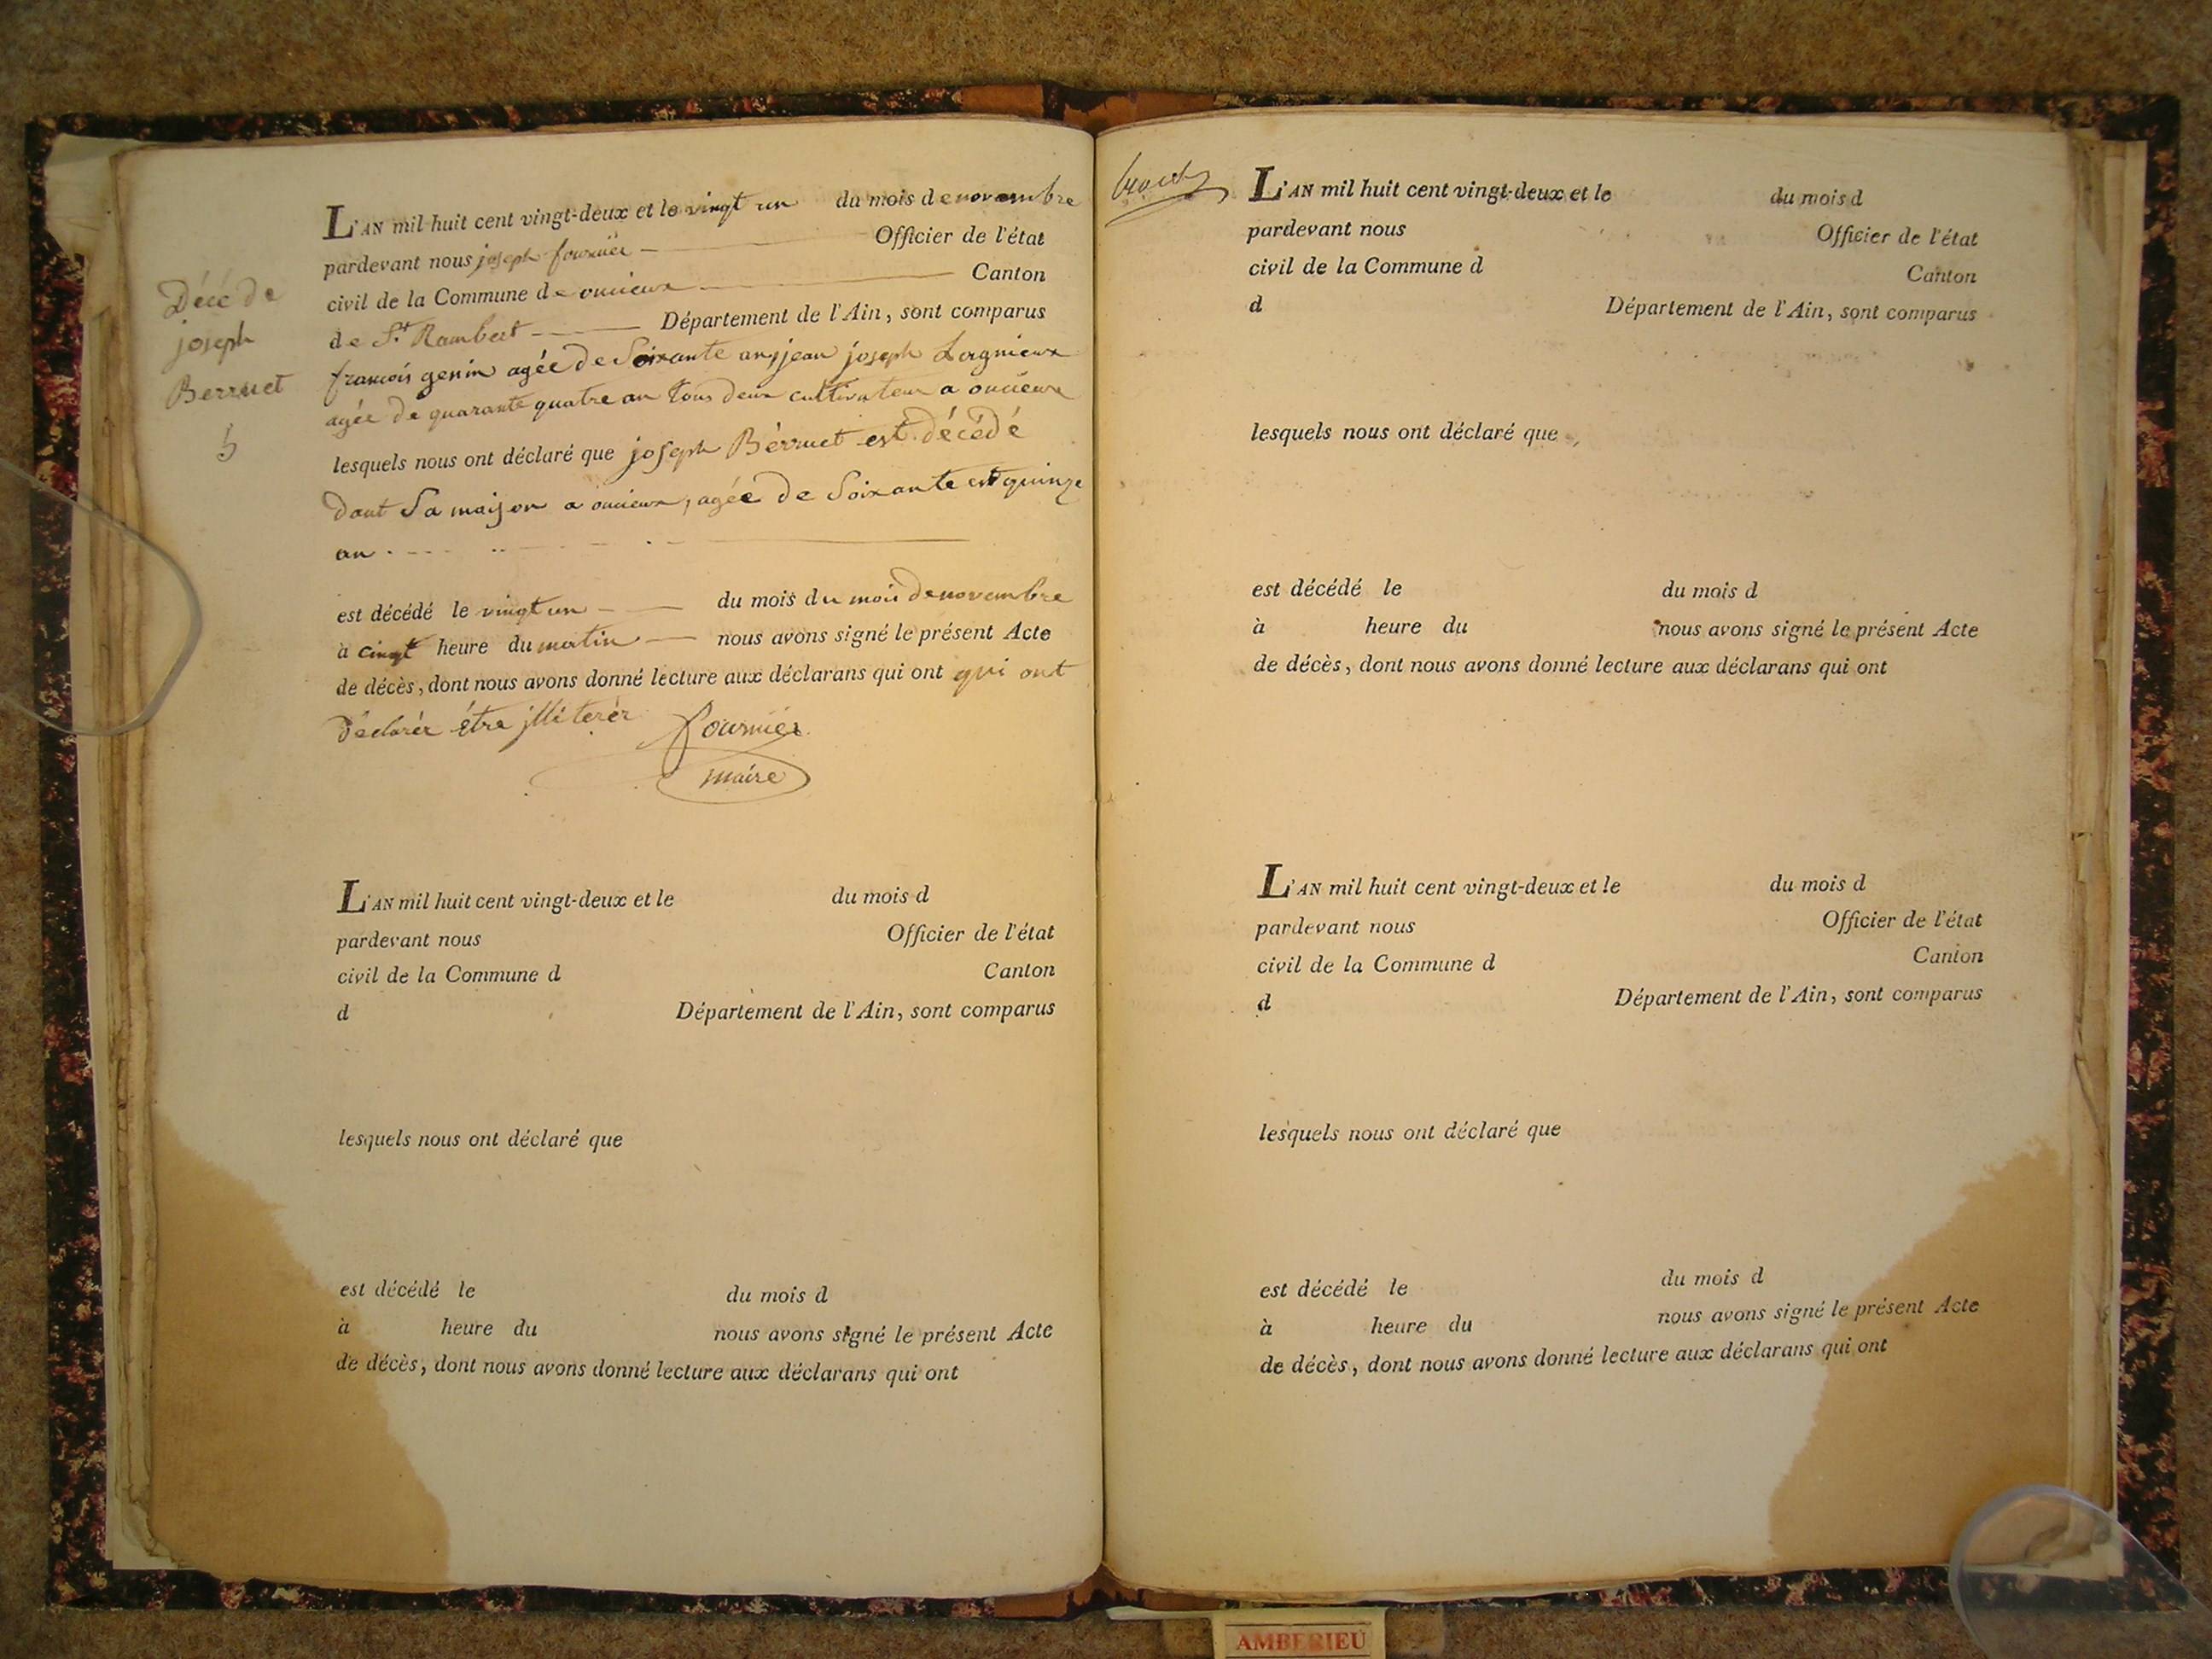 Décé de
joseph
Berruet
5
L'AN mil huit cent vingt-deux et le vingt un du mois de novembre
pardevant nous joseph fournier Officier de l'état
civil de la Commune de oncieux Canton
de St Rambert Département de l'Ain, sont comparus
francois genin agée de Soixante ans, jean joseph Lagnieux
agée de quarante quatre an tous deux cultivateur a oncieux
lesquels nous ont déclaré que joseph Bérruet est décédé
dant Sa maison a oncieux, agée de Soixante est quinze
an
est décédé le vingt un du mois du mois de novembre
à cinqt heure du matin nous avons signé le présent Acte
de décès, dont nous avons donné lecture aux déclarans qui ont qui ont
déclarér étre jlliterér fournier
maire
L'AN mil huit cent vingt-deux et le du mois d
pardevant nous Officier de l'état
civil de la Commune d Canton
d Département de l'Ain, sont comparus
lesquels nous ont déclaré que
est décédé le du mois d
à heure du nous avons signé le présent Acte
de décès, dont nous avons donné lecture aux déclarans qui ont
L'AN mil huit cent vingt-deux et le du mois d
pardevant nous Officier de l'état
civil de la Commune d Canton
d Département de l'Ain, sont comparus
lesquels nous ont déclaré que
est décédé le du mois d
à heure du nous avons signé le présent Acte
de décès, dont nous avons donné lecture aux déclarans qui ont
L'AN mil huit cent vingt-deux et le du mois d
pardevant nous Officier de l'état
civil de la Commune d Canton
d Département de l'Ain, sont comparus
lesquels nous ont déclaré que
est décédé le du mois d
à heure du nous avons signé le présent Acte
de décès, dont nous avons donné lecture aux déclarans qui ont
AMBERIEU